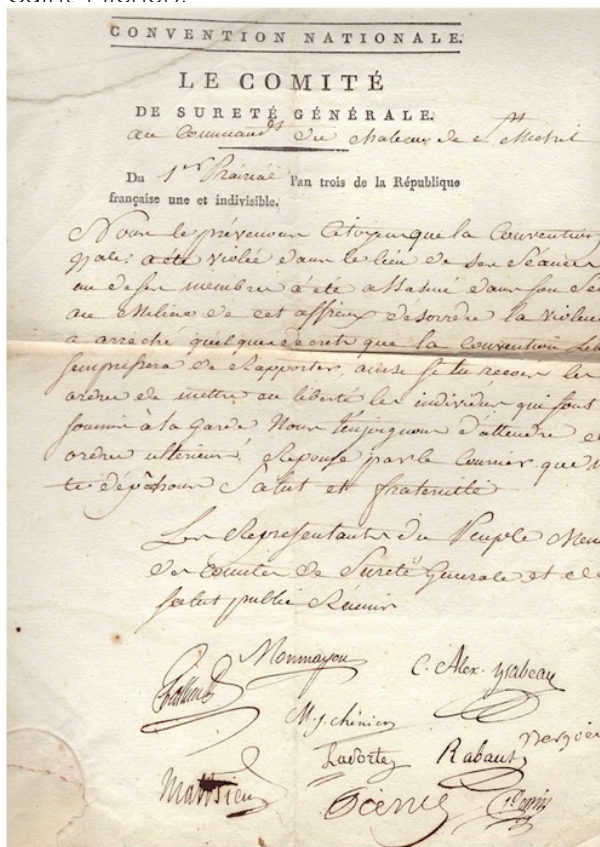 CONVENTION NATIONALE.
LE COMITÉ
DE SURETÉ GÉNÉRALE.
au Commandt du chateau de St Michel
Du 1er Prairial l'an trois de la République
française une et indivisible.
Nous te prévenons Citoyen que la Convention
a été violée dans le lieu de ses Séances
un de ses membres a été assassiné dans son
au milieu de cet affreux désordre la violence
a arraché quelques décrets que la convention
s'empressera de Rapporter, ainsi si tu recois les
ordres de mettre en liberté les individus qui sont
soumis à ta garde Nous t'enjoignons d'attendre
ordres ultérieurs. Réponse par le Courrier que
te dépêchons Salut et fraternité
Les Représentants du Peuple
des comités de Sureté Générale et de
salut public Réunis
Monmayou C. Alex. ysabeau
M. J. chénier
Laporte Rabaut
Mathieu Pierret